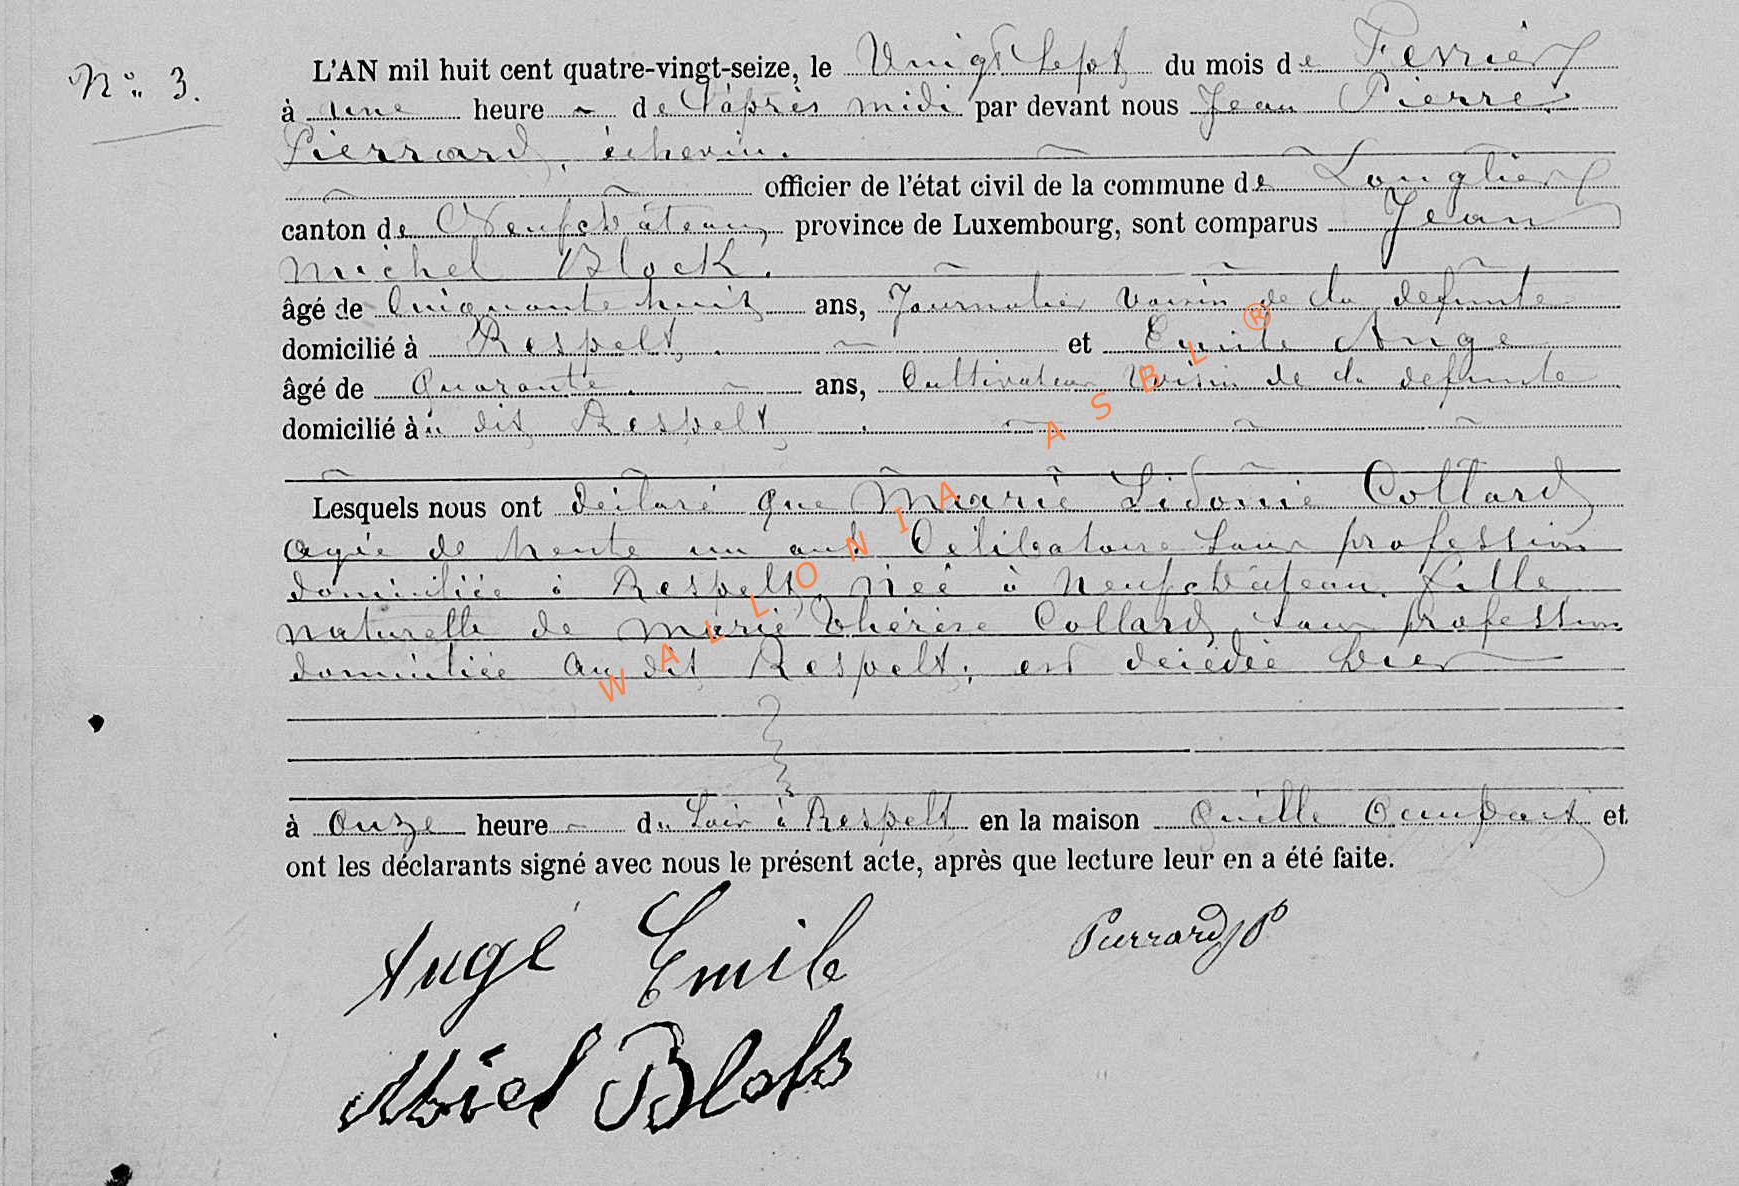 N° 3.
L'AN mil huit cent quatre-vingt-seize, le Vingt Sept du mois de Fevrier
à une heure de l'après midi par devant nous Jean Pierre
Pierrard, échevin.
officier de l'état civil de la commune de Longlier
canton de Neufchâteau, province de Luxembourg, sont comparus Jean
Michel Block.
âgé de Cinquante huit ans, Journalier voisin de la defunte
domicilié à Respelt. et Emile Ange
âgé de Quarante ans, Cultivateur Voisin de la defunte
domicilié à u dit Respelt.
Lesquels nous ont déclaré que Marie Sidonie Collard
agée de trente un ans Célibataire Sans profession
domiciliée à Respelt, neé à Neufchâteau. fille
naturelle de Marie Thérèse Collard, sans profession
domiciliée au dit Respelt, est décédée hier
à Onze heure du Soir à Respelt en la maison quelle Occupait et
ont les déclarants signé avec nous le présent acte, après que lecture leur en a été faite.
Augé Emile Pierrard JP
Block
WALLONIA ASBL ®